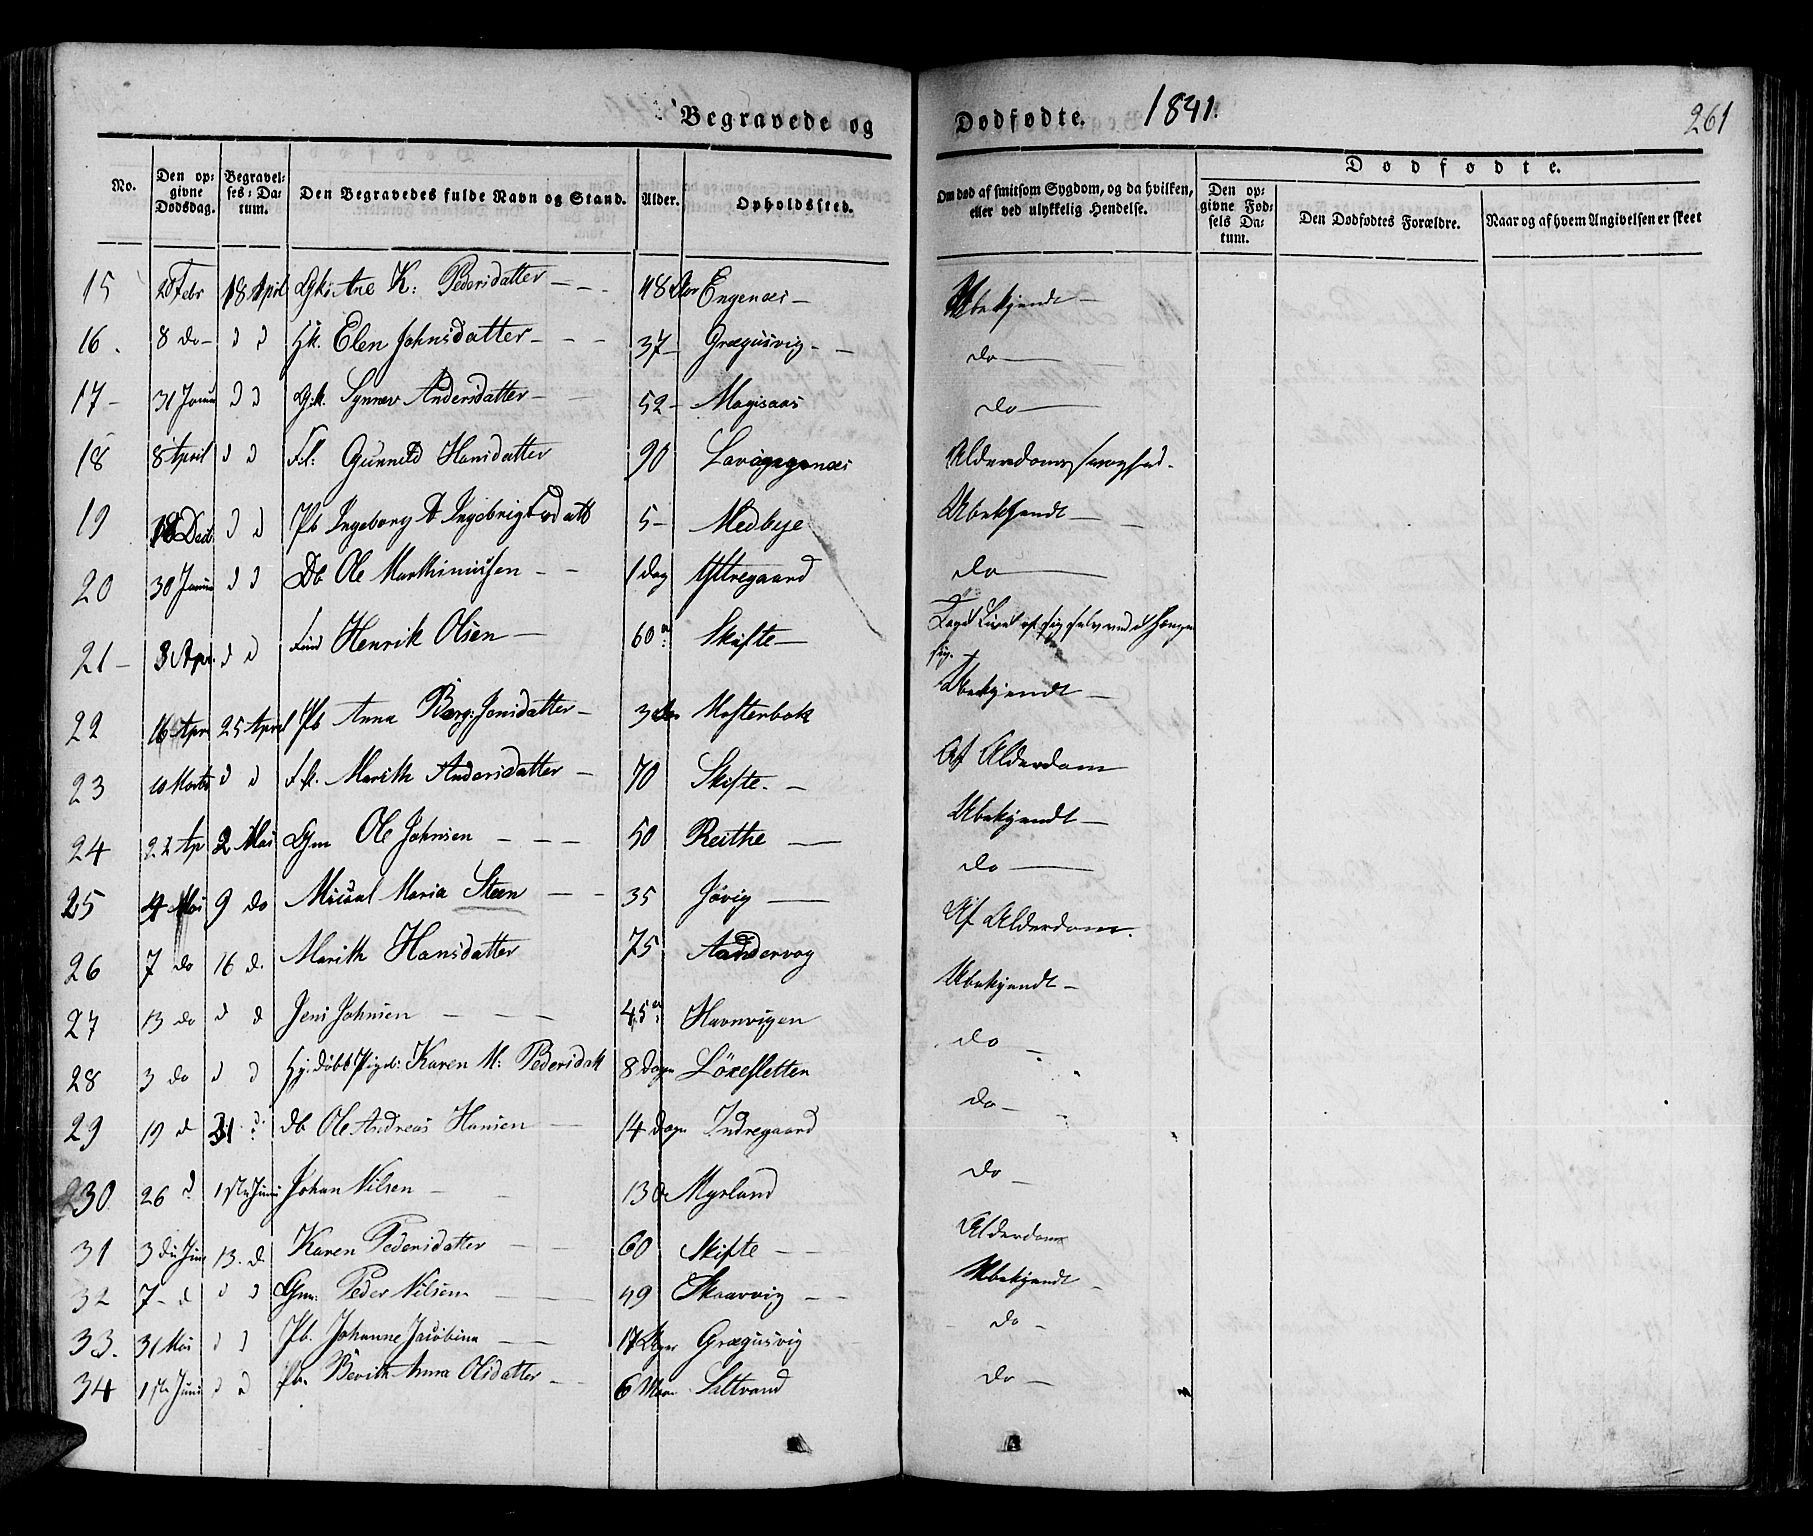 Begravede og Dødfødte. 1841. 261
No. Den opgivne Dødsdag. Begravelses-Datum. Den Begravedes fulde Navn og Stand. Alder. Opholdssted. Om død af smitsom Sygdom, og da hvilken, eller ved ulykkelig Hendelse.
Dødfødte.
Den opgivne Fødsels Datum. Den Dødfødtes Forældre. Naar og af hvem Angivelsen er skeet
15 28 Febr 18 April Gk: Ane K: Pedersdatter 48 Aar Engenæs Ubekjendt
16. 8 do d d Gk. Elen Johnsdatter 37 Græguisvig do
17 31 Januar d d Gk. Synnev Andersdatter 52 Magisaas do
18 8 April d d Fl: Gunneld Hansdatter 90 Alderdoms
19 18 Decb d d Pb Ingeborg Ingebrigtsdatt 5 Medbye Ubekjendt
20 30 Januar d d Db Ole Marthinussen 1 dag Yttregaard do
21 3 Apr. d d Find Henrik Olsen 60 Skifte Taget Livet af sig selv ved at hænge sig.
22 16 Apr 25 April Pb Anna Berg: Jensdatter 3 Mosterbak Ubekjendt
23 10 Marts d d Fk. Marith Andersdatter 70 Skifte. Af Alderdom
24 22 Ap 2 Mai Gm Ole Johnsen 50 Reithe Ubekjendt
25 4 Mai 9 do Maria Steen 35 Jövig do
26 7 do 16 d. Marith Hansdatter 75 Aandervag Af Alderdom.
27 13 do d d Jens Johnsen 45 Havnvigen Ubekjendt
28 3 do d d Hj: døbt Pigeb: Karen M: Pedersdatt 8 Dage Löxesletten do
29 19 d 31 d: Db Ole Andreas Hansen 14 Dage Indregaard do
30 26 d 1ste Juni Johan Nilsen 13 Myrland do
31 3die Juni 13. d. Karen Pedersdatter 60 Skifte Alderdom
32 7 d d d Gm: Peder Nilsen 49 Skaarvig Ubekjendt
33. 31 Mai d d Pb. Johanne Jacobina 17 Uger Græguisvig do
34 1ste Juni d d Pb. Berith Anna Olsdatter 6 Maan Saltvand do